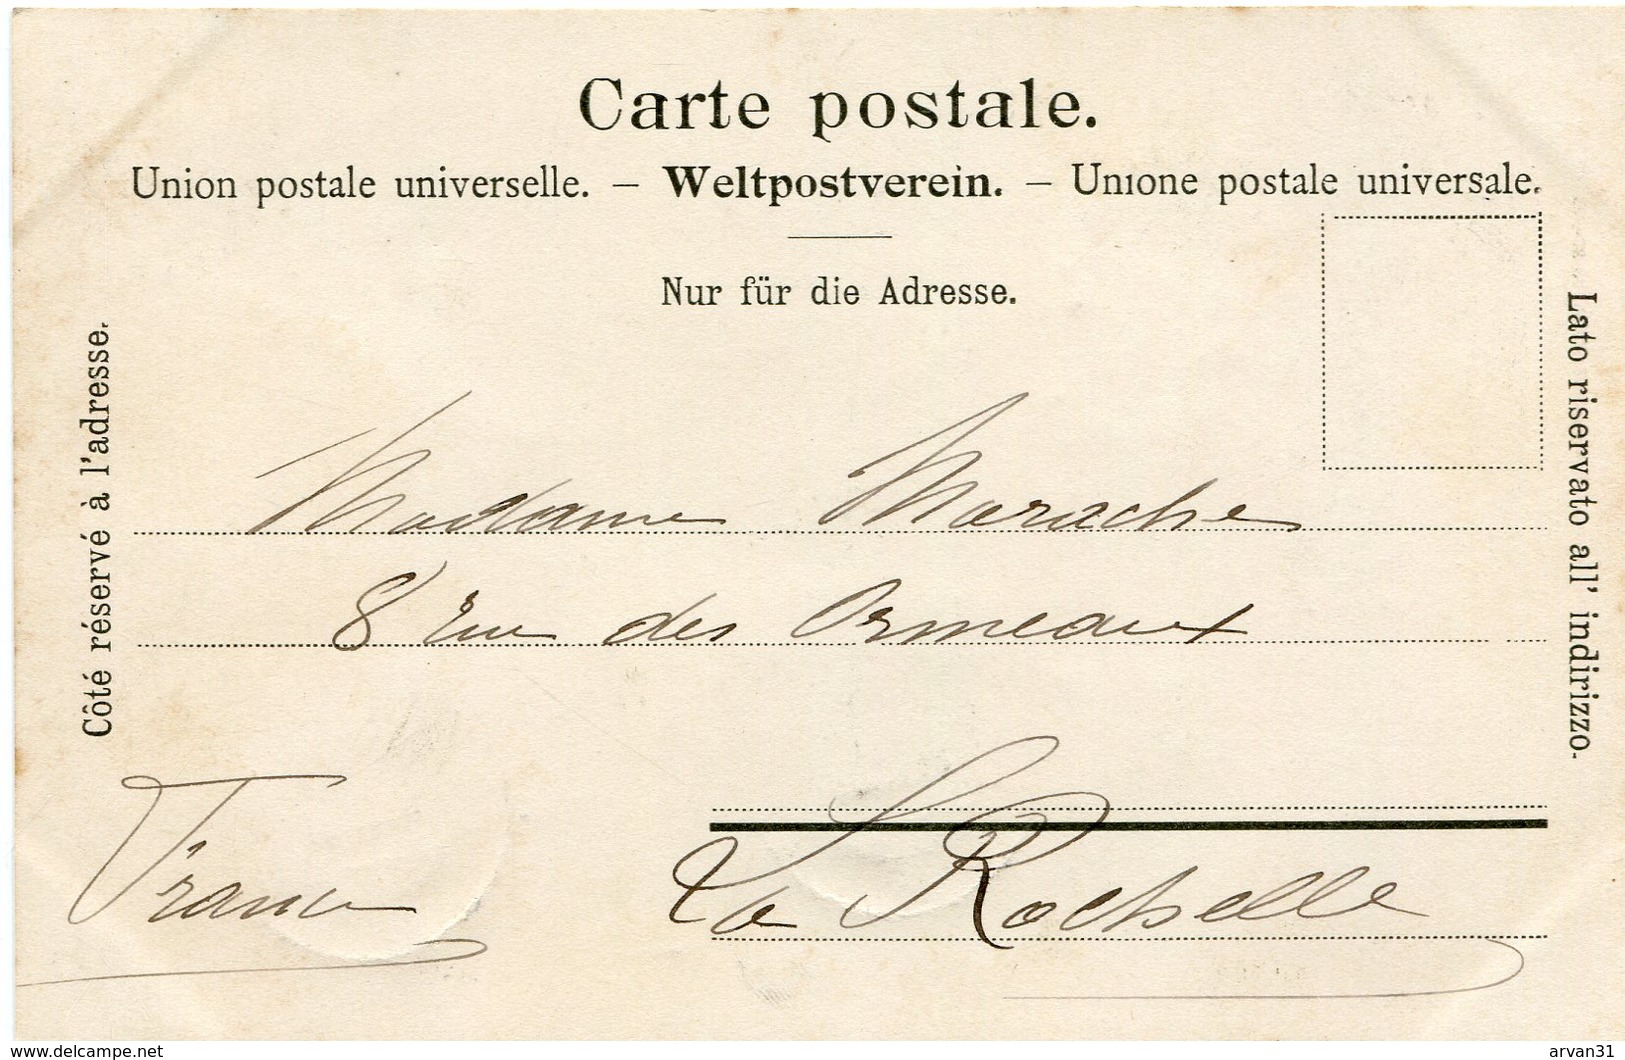 Carte postale.
Union postale universelle. – Weltpostverein. – Unione postale universale.
Nur für die Adresse.
Côté réservé à l'adresse.
Lato riservato all' indirizzo.
Madame Marache
8 rue des Ormeaux
La Rochelle
France
www.delcampe.net
arvan31